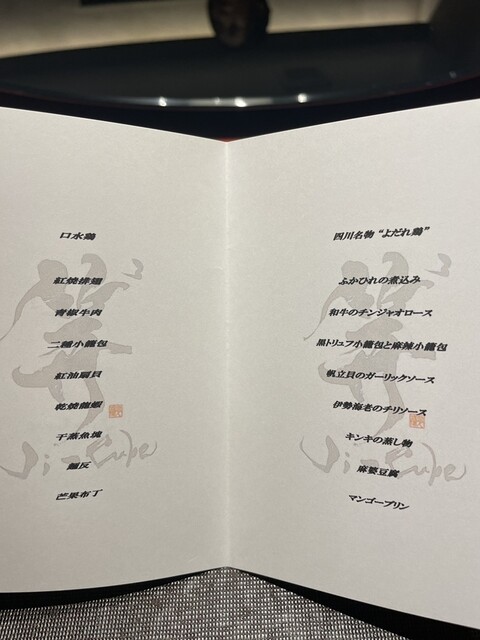 口水鶏
紅焼排翅
青椒牛肉
二種小籠包
紅油扇貝
乾焼龍蝦
干蒸魚燴
麺反
芒果布丁
四川名物“よだれ鶏”
ふかひれの煮込み
和牛のチンジャオロース
黒トリュフ小籠包と麻辣小籠包
帆立貝のガーリックソース
伊勢海老のチリソース
キンキの蒸し物
麻婆豆腐
マンゴープリン